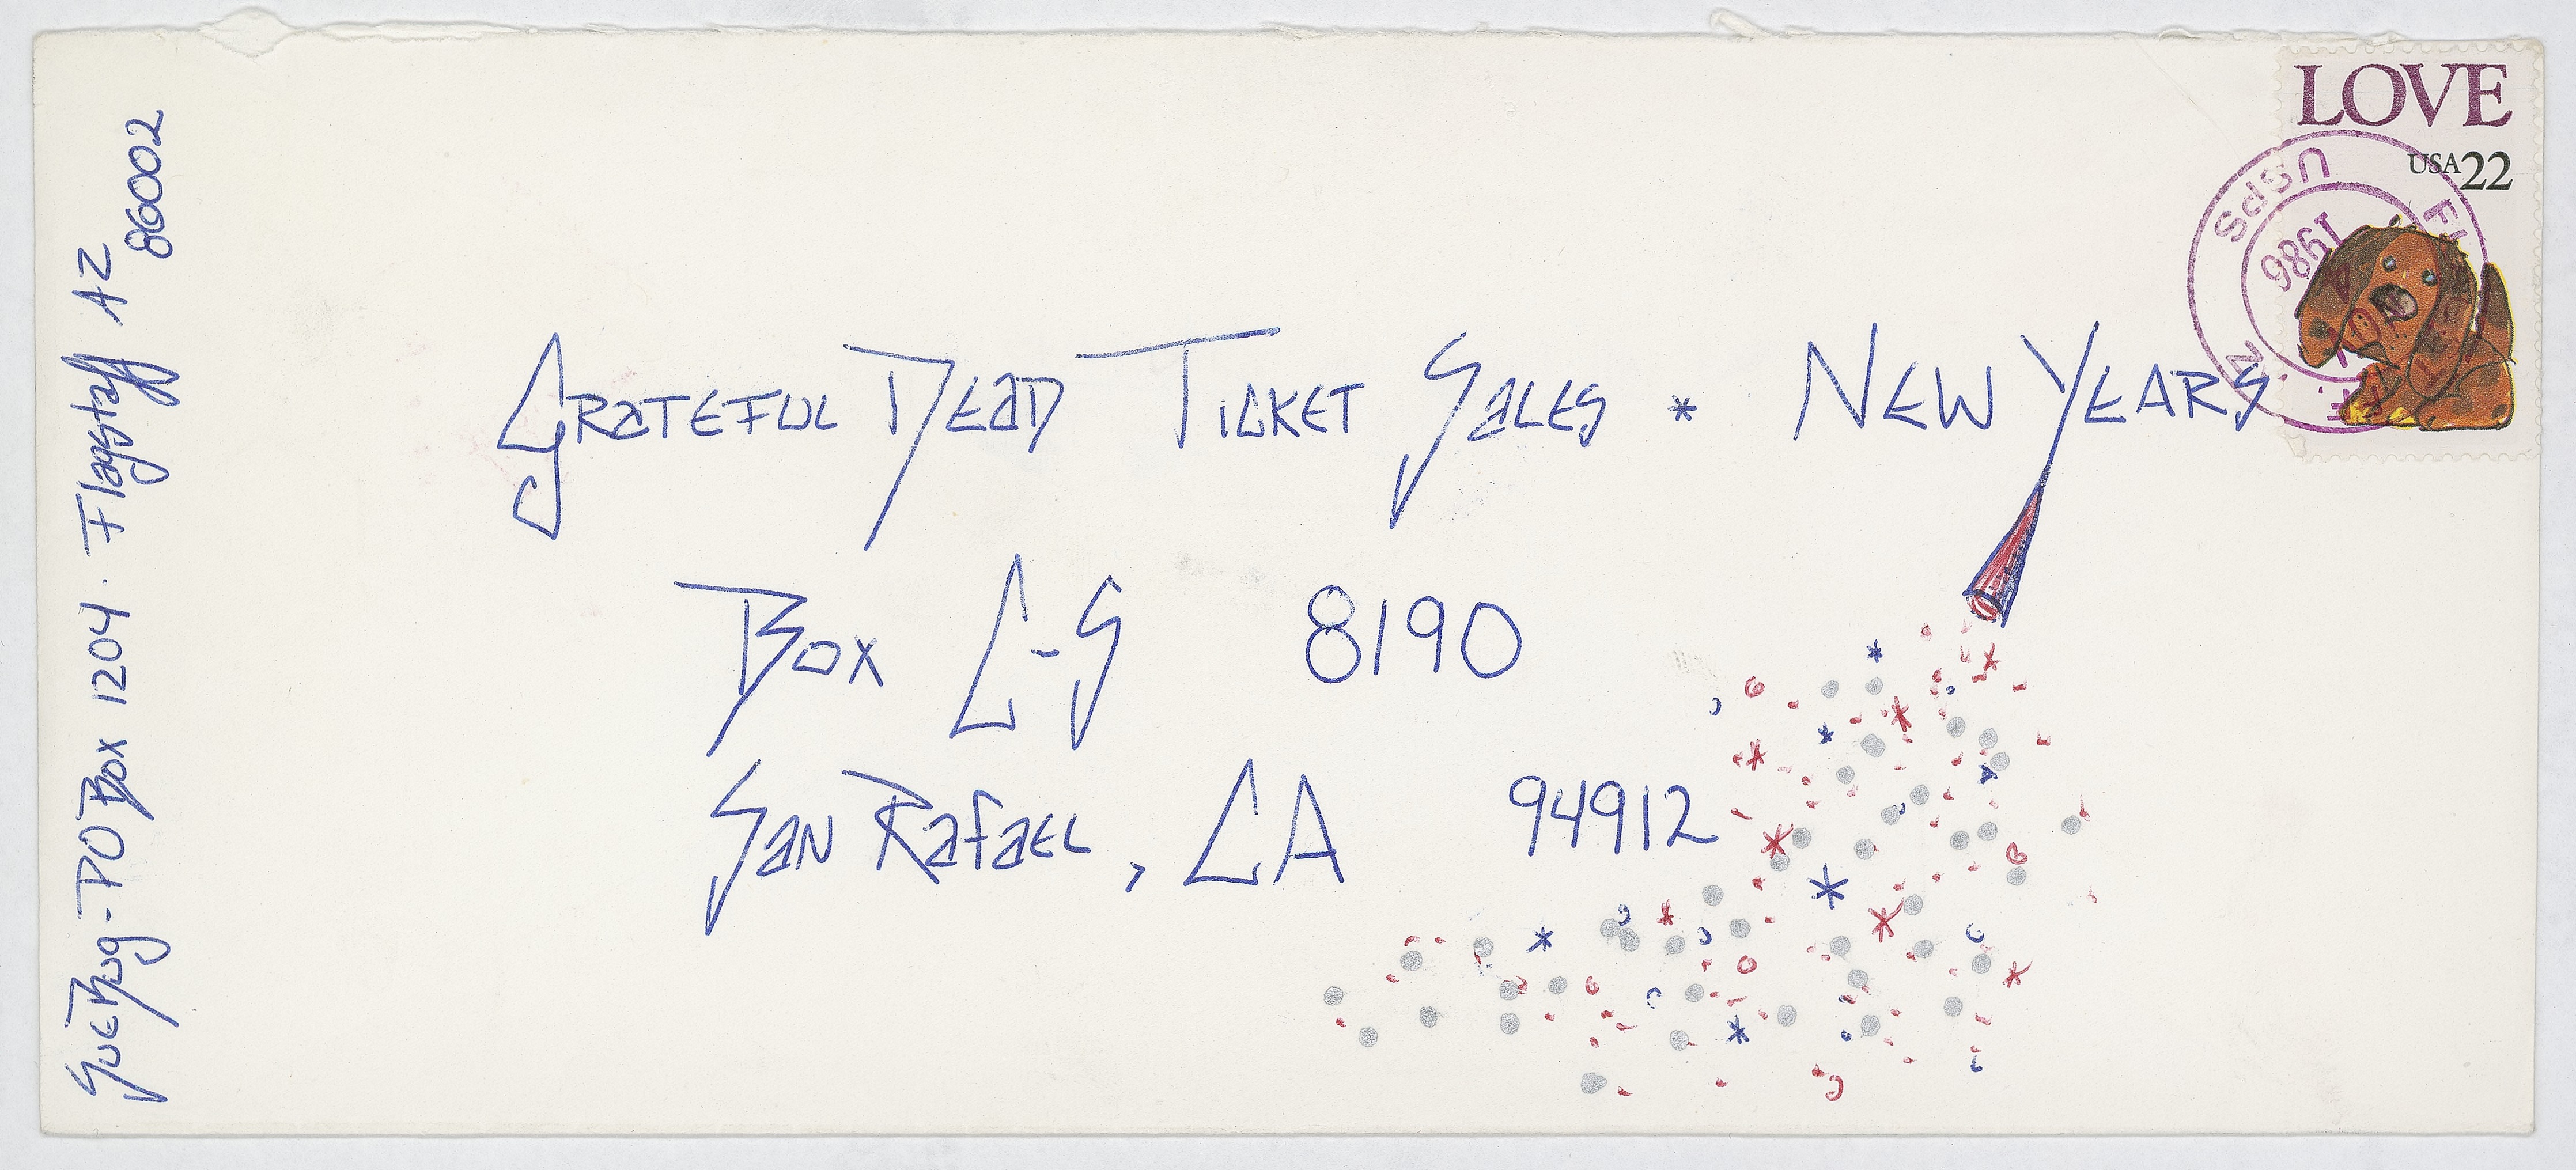 SueBug - PO Box 1204 · Flagstaff AZ
86002
LOVE
USA 22
USPS
1986
GRATEFUL DEAD TICKET SALES * NEW YEARS
Box C-S 8190
SAN RAFAEL, CA 94912